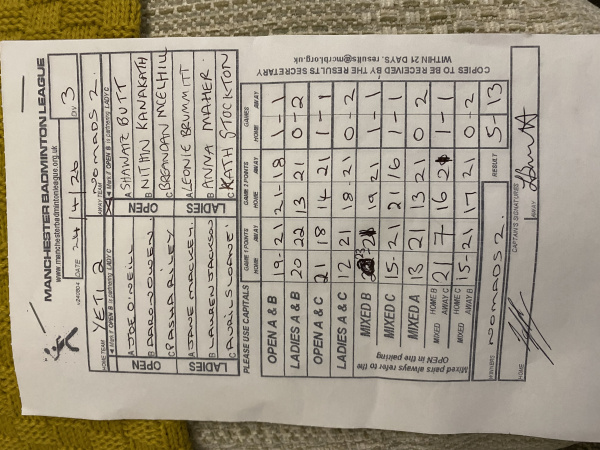 MANCHESTER BADMINTON LEAGUE
www.manchesterbadmintonleague.org.uk
v240804 DATE 24/4/26 DIV 3
HOME TEAM YETI 2 AWAY TEAM NOMADS 2.
◄ Men if OPEN B is partnering LADY C ◄ Men if OPEN B is partnering LADY C
OPEN A JOE O'NEILL OPEN A SHAWAIZ BUTT
B B NITHIN KANAKATH
C PASHA RILEY C BRENDAN MCELHILL
LADIES A JANE MACKEY. LADIES A LEONIE BRUMMITT
B LAUREN JACKSON B ANNA MAHER.
C AVRIL SLOANE. C KATH STOCKTON
PLEASE USE CAPITALS GAME 1 POINTS GAME 2 POINTS GAMES
HOME AWAY HOME AWAY HOME AWAY
OPEN A & B 19-21 21-18 1-1
LADIES A & B 20 22 13 21 0-2
OPEN A & C 21 18 14 21 1-1
LADIES A & C 12 21 18-21 0-2
MIXED B 21 19 21 1-1
MIXED C 15-21 21 16 1-1
MIXED A 13 21 13 21 0 2
MIXED HOME B AWAY C 21 7 16 21 1-1
MIXED HOME C AWAY B 15-21 17 21 0-2
Mixed pairs always refer to the OPEN in the pairing
WINNERS NOMADS 2. RESULT 5-13
CAPTAIN'S SIGNATURES
HOME AWAY
COPIES TO BE RECEIVED BY THE RESULTS SECRETARY
WITHIN 21 DAYS. results@mcrbl.org.uk